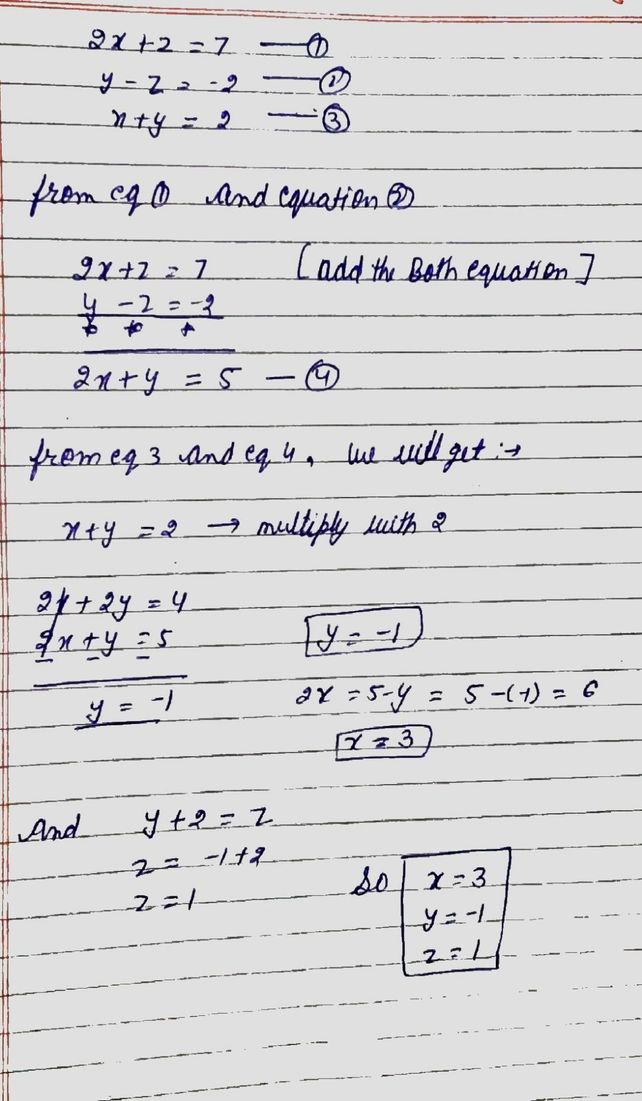 2x + z = 7 — ①
y - z = -2 — ②
x + y = 2 — ③
from eq ① And equation ②
2x + z = 7 [add the Both equation]
y - z = -2
+ + +
2x + y = 5 — ④
from eq 3 and eq 4, we will get :→
x + y = 2 → multiply with 2
2x + 2y = 4
2x + y = 5 y = -1
- - -
y = -1 2x = 5-y = 5-(-1) = 6
x = 3
And y + 2 = z
z = -1+2
z = 1
So x = 3
y = -1
z = 1